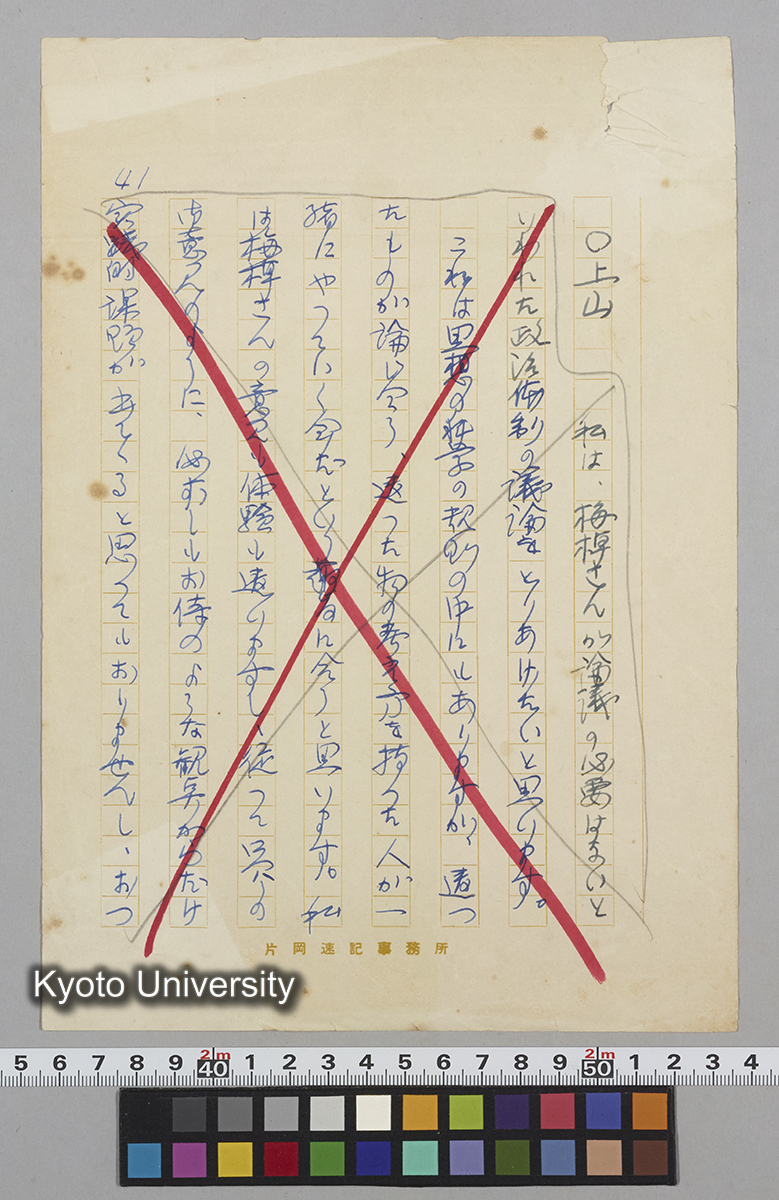 〇上山　私は、梅棹さんが論議の必要はないと
いわれた政治体制の議論をとりあげたいと思います。
これは思想の科学の規則の中にもありますが、違つ
たものが論じ合う、違つた物の考え方を持つた人が一
緒にやつていく会だという趣旨に合うと思います。私
は梅棹さんの意見も体験も違いますし、従つて
御意見のように、必ずしもお侍のような観点からだけ
実践的課題が出てくると思つてもおりませんし、おつ
41
片岡速記事務所
Kyoto University
5 6 7 8 9 40 1 2 3 4 5 6 7 8 9 50 1 2 3 4
2m
2m